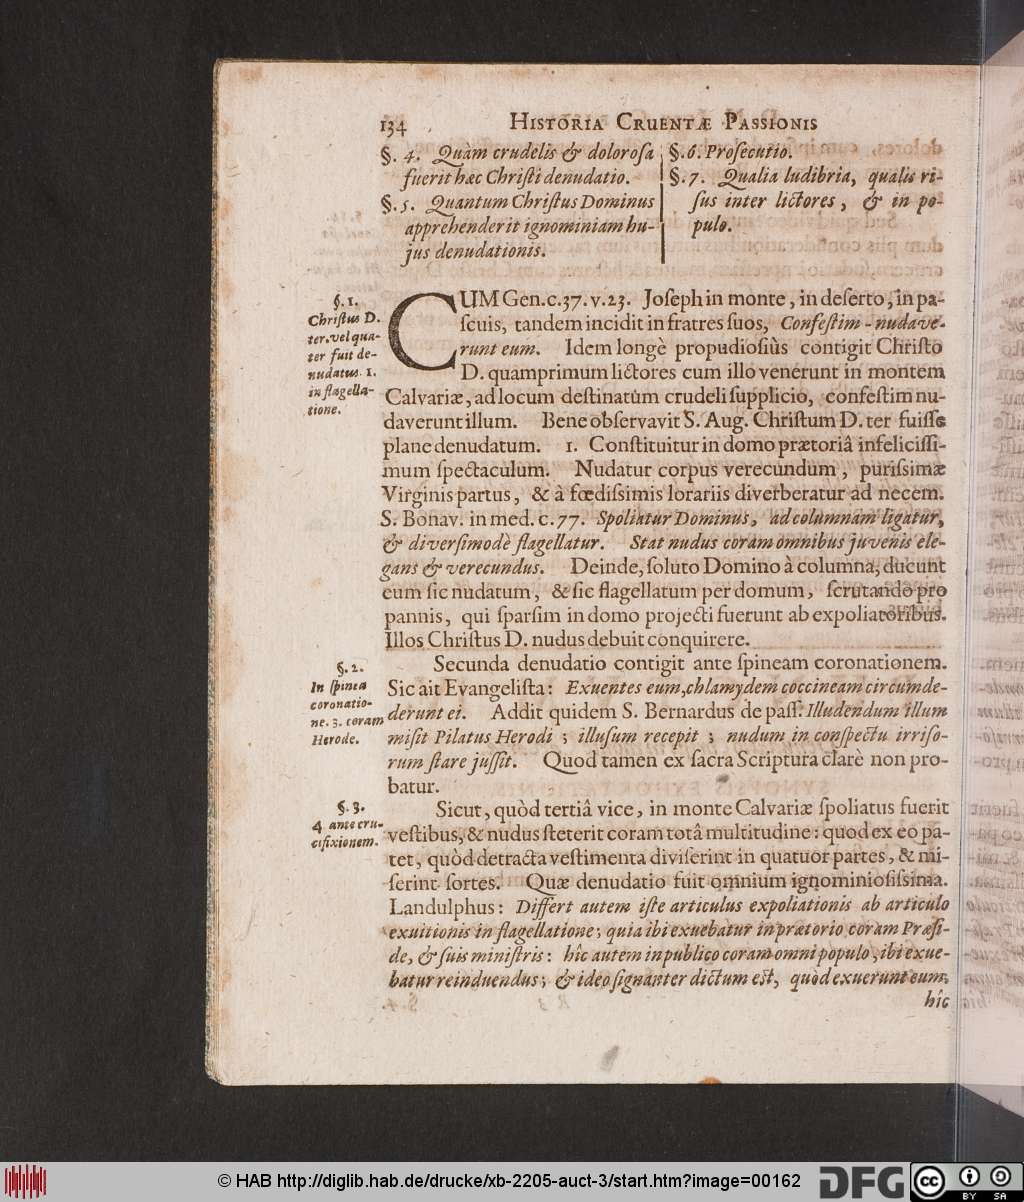 134 HISTORIA CRUENTÆ PASSIONIS
§. 4. Quàm crudelis & doloroſa
fuerit hæc Chriſti denudatio.
§. 5. Quantum Chriſtus Dominus
apprehenderit ignominiam hu-
jus denudationis.
§. 6. Proſecutio.
§. 7. Qualia ludibria, qualis ri-
ſus inter lictores, & in po-
pulo.
§. 1.
Chriſtus D.
ter. vel qua-
ter fuit de-
nudatus. 1.
in flagella-
tione.
CUM Gen. c. 37. v. 23. Joſeph in monte, in deſerto, in pa-
ſcuis, tandem incidit in fratres ſuos, Confeſtim - nudave-
runt eum. Idem longè propudioſiùs contigit Chriſto
D. quamprimum lictores cum illo venerunt in montem
Calvariæ, ad locum deſtinatum crudeli ſupplicio, confeſtim nu-
daverunt illum. Bene obſervavit S. Aug. Chriſtum D. ter fuiſſe
plane denudatum. 1. Conſtituitur in domo prætoriâ infeliciſſi-
mum ſpectaculum. Nudatur corpus verecundum, puriſsimæ
Virginis partus, & â fœdiſsimis lorariis diverberatur ad necem.
S. Bonav. in med. c. 77. Spoliatur Dominus, ad columnam ligatur,
& diverſimodè flagellatur. Stat nudus coram omnibus juvenis ele-
gans & verecundus. Deinde, ſoluto Domino à columna, ducunt
eum ſic nudatum, & ſic flagellatum per domum, ſcrutando pro
pannis, qui ſparſim in domo projecti fuerunt ab expoliatoribus.
Illos Chriſtus D. nudus debuit conquirere.
§. 2.
In ſpinea
coronatio-
ne. 3. coram
Herode.
Secunda denudatio contigit ante ſpineam coronationem.
Sic ait Evangeliſta: Exuentes eum, chlamydem coccineam circumde-
derunt ei. Addit quidem S. Bernardus de paſſ. Illudendum illum
miſit Pilatus Herodi; illuſum recepit; nudum in conſpectu irriſo-
rum ſtare juſſit. Quod tamen ex ſacra Scriptura clarè non pro-
batur.
§. 3.
4. ante cru-
cifixionem.
Sicut, quòd tertiâ vice, in monte Calvariæ ſpoliatus fuerit
veſtibus, & nudus ſteterit coram totâ multitudine: quod ex eo pa-
tet, quòd detracta veſtimenta diviſerint in quatuor partes, & mi-
ſerint ſortes. Quæ denudatio fuit omnium ignominioſiſsima.
Landulphus: Differt autem iſte articulus expoliationis ab articulo
exuitionis in flagellatione; quia ibi exuebatur in prætorio coram Præſi-
de, & ſuis miniſtris: hîc autem in publico coram omni populo, ibi exue-
batur reinduendus; & ideo ſignanter dictum eſt, quòd exuerunt eum,
hîc
© HAB http://diglib.hab.de/drucke/xb-2205-auct-3/start.htm?image=00162
DFG
cc BY SA